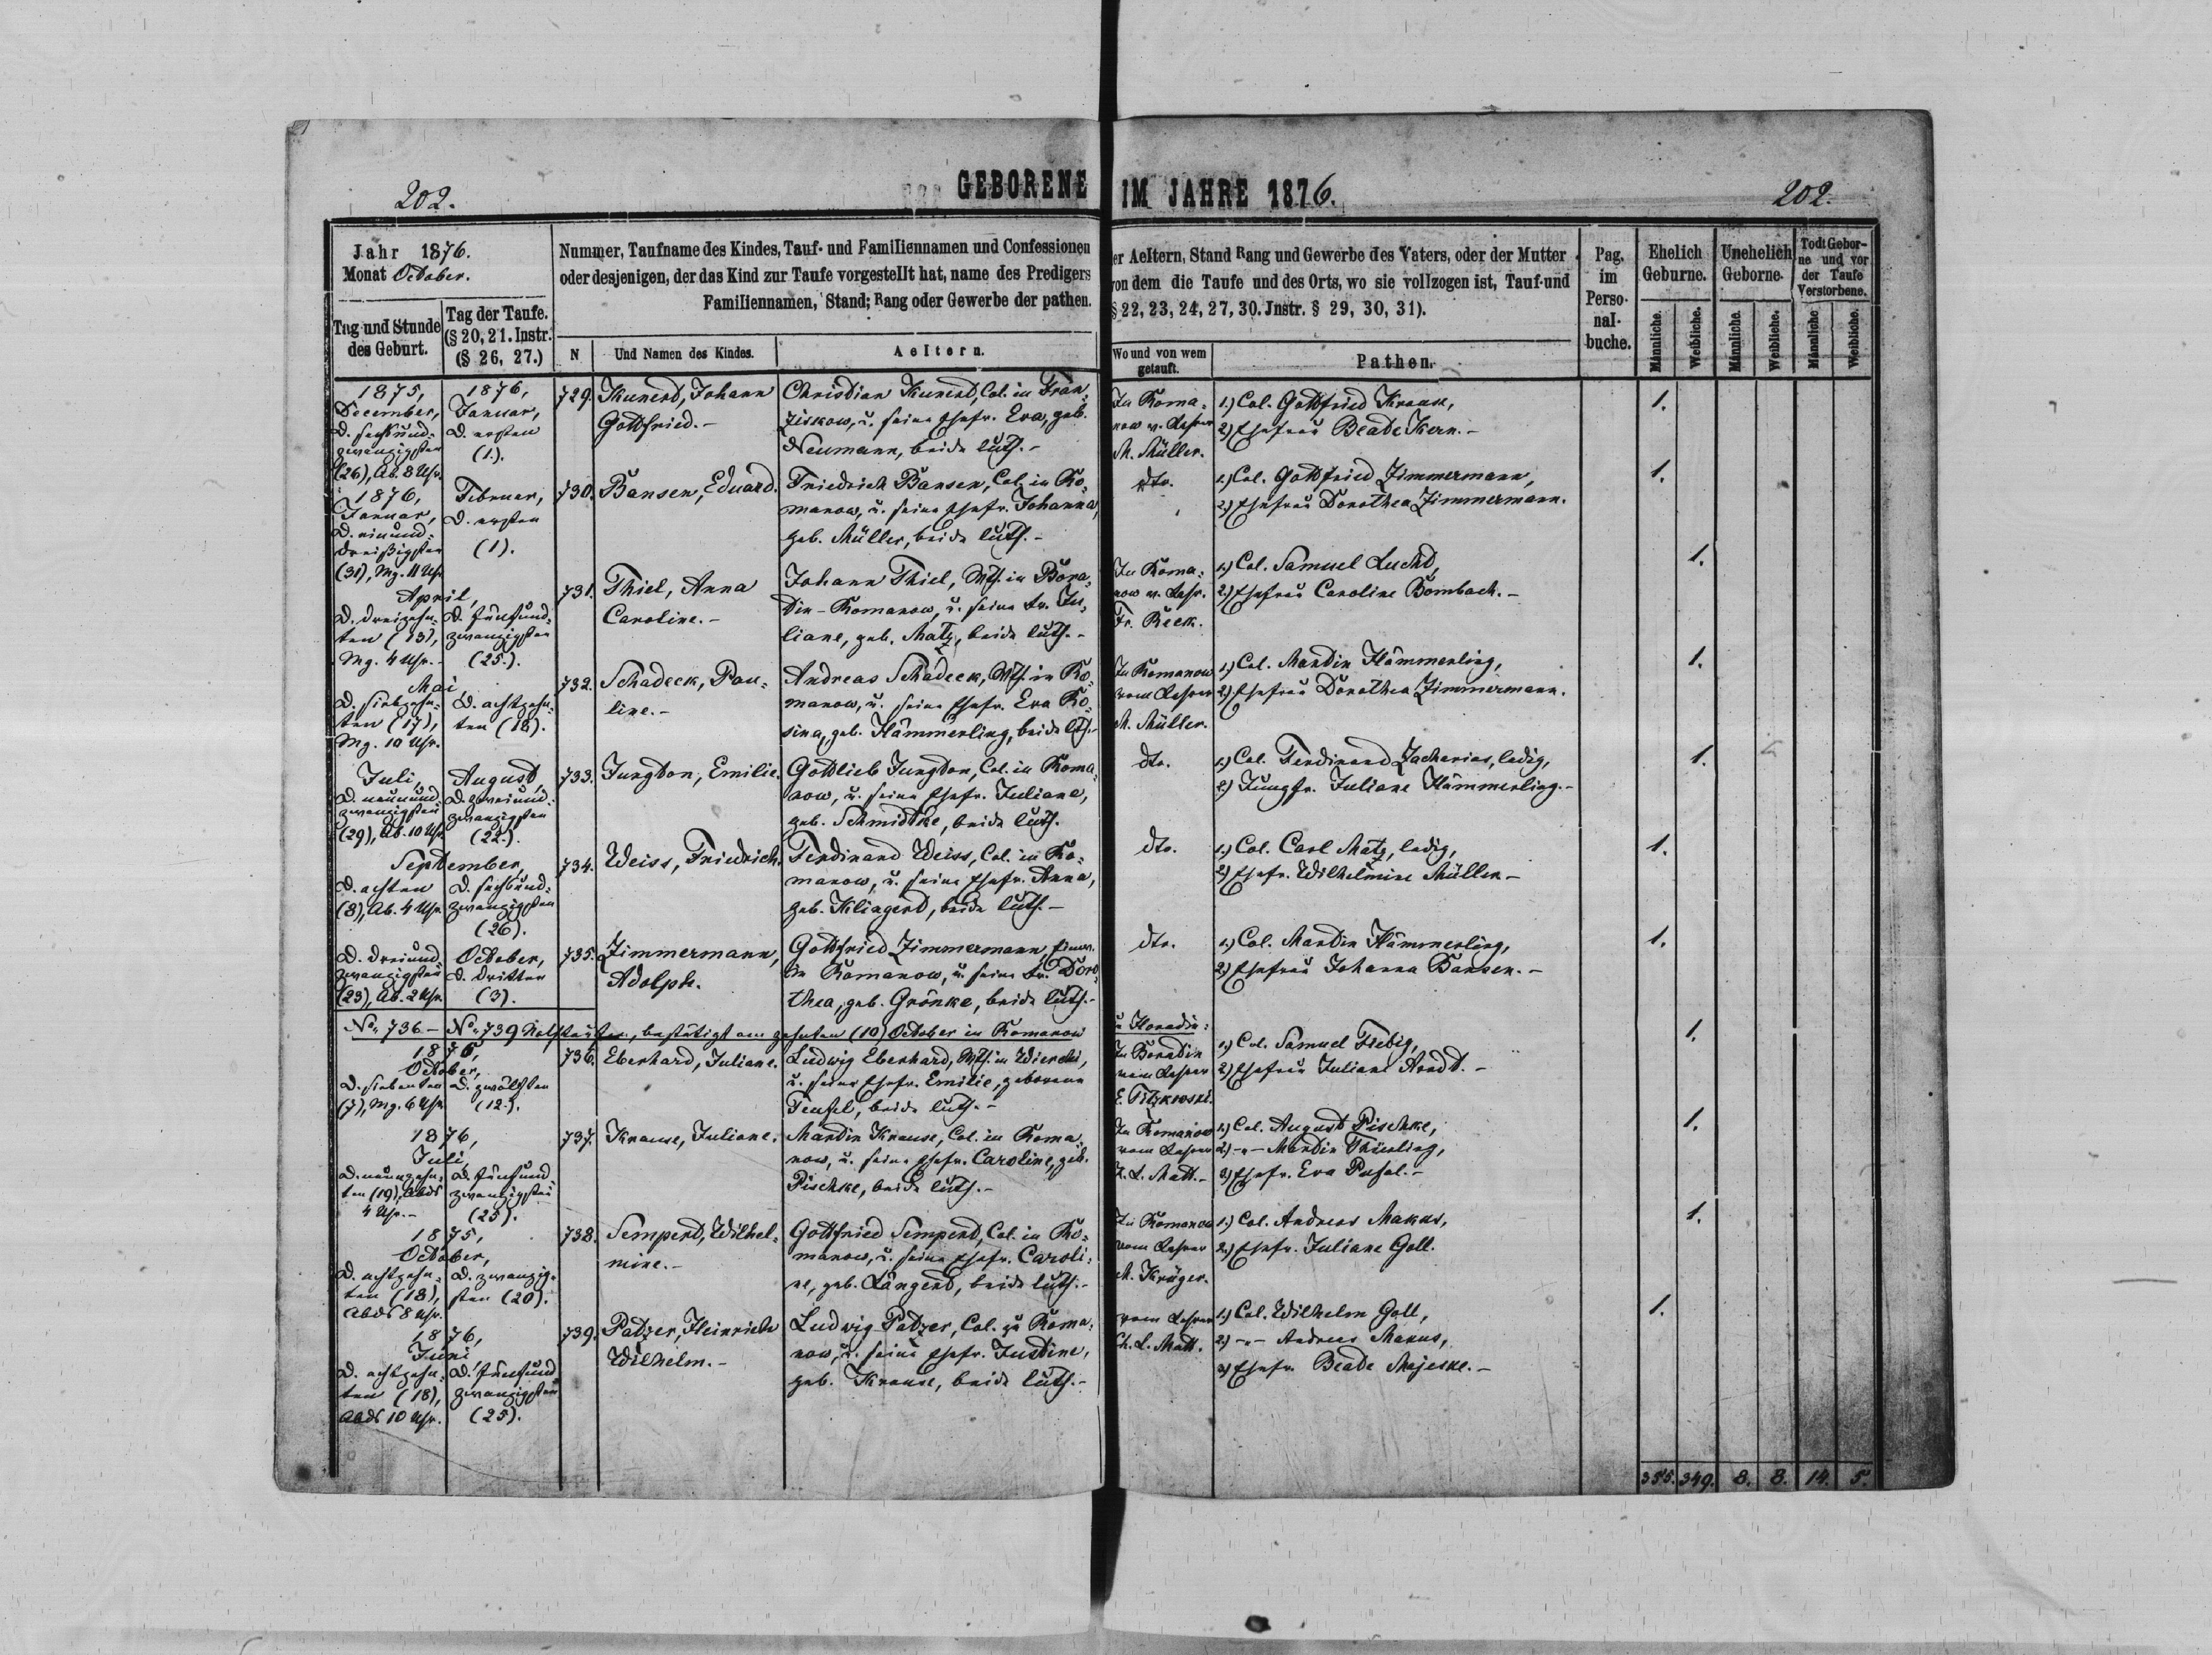 202.
GEBORENE IM JAHRE 1876.
202.
Jahr 1876.
Monat October.
Tag und Stunde
des Geburt.
Tag der Taufe.
(§ 20, 21. Instr.
(§ 26, 27.)
Nummer, Taufname des Kindes, Tauf- und Familiennamen und Confessionen
oder desjenigen, der das Kind zur Taufe vorgestellt hat, name des Predigers
Familiennamen, Stand; Rang oder Gewerbe der pathen.
N
Und Namen des Kindes.
Aeltern.
er Aeltern, Stand Rang und Gewerbe des Vaters, oder der Mutter
von dem die Taufe und des Orts, wo sie vollzogen ist, Tauf-und
§ 22, 23, 24, 27, 30. Jnstr. § 29, 30, 31).
Wo und von wem
getauft.
Pathen.
Pag.
im
Perso-
nal-
buche.
Ehelich
Geburne.
Unehelich
Geborne.
Todt Gebor-
ne und vor
der Taufe
Verstorbene.
Männliche.
Weibliche.
Männliche.
Weibliche.
Männliche
Weibliche.
1875,
December,
D. sechsund-
zwanzigsten
(26), Ab. 8 Uhr.
1876,
Januar,
D. ersten
(1.).
729.
Kunerd, Johann
Gottfried.-
Christian Kunerd, Col. in Fran-
ziskow, u. seine Ehefr. Eva, geb.
Neumann, beide luth.-
In Roma-
now v. Lehrer
M. Müller.
1.) Col. Gottfried Krause,
2.) Ehefrau Beate Kern.-
1.
1876,
Januar,
D. einund-
dreißigsten
(31), Mg. 11 Uhr
Februar,
D. ersten
(1).
730.
Bansen, Eduard.
Friedrich Bansen, Col. in Ro-
manow, u. seine Ehefr. Johanna,
geb. Müller, beide luth.-
dto.
1.) Col. Gottfried Zimmermann,
2.) Ehefrau Dorothea Zimmermann.
1.
April,
D. dreizehn-
ten (13),
Mg. 4 Uhr.-
D. fünfund-
zwanzigsten
(25.).
731.
Thiel, Anna
Caroline.-
Johann Thiel, Wth. in Bora-
din-Romanow, u. seine Fr. Ju-
liane, geb. Matz, beide luth.-
In Roma-
now v. Lehr.
Fr. Reck.
1.) Col. Samuel Lucht,
2.) Ehefrau Caroline Bombach.-
1.
Mai
D. siebzehn-
ten (17),
Mg. 10 Uhr.
D. achtzehn-
ten (18).
732.
Schadeck, Pau-
line.-
Andreas Schadeck, Wth. in Ro-
manow, u. seine Ehefr. Eva Ro-
sina, geb. Hämmerling, beide lth.-
In Romanow
vom Lehrer
M. Müller.
1.) Col. Martin Hämmerling,
2.) Ehefrau Dorothea Zimmermann.
1.
Juli,
D. neunund-
zwanzigsten
(29), Ab. 10 Uhr.
August,
D. zweiund-
zwanzigsten
(22.).
733.
Jungton, Emilie.
Gottlieb Jungton, Col. in Roma-
now, u. seine Ehefr. Juliane,
geb. Schmidtke, beide luth.
dto.
1.) Col. Ferdinand Zacharias, ledig,
2.) Jungfr. Juliane Hämmerling.-
1.
September,
D. achten
(8), Ab. 4 Uhr.
D. sechsund-
zwanzigsten
(26).
734.
Weiss, Friedrich.
Ferdinand Weiss, Col. in Ro-
manow, u. seine Ehefr. Anna,
geb. Klingerd, beide luth.-
dto.
1.) Col. Carl Matz, ledig,
2.) Ehefr. Wilhelmine Müller-
1.
D. dreiund-
zwanzigsten
(23), Ab. 2 Uhr.
October,
D. dritten
(3).
735.
Zimmermann,
Adolph.
Gottfried Zimmermann,
in Romanow, u. seine Fr. Doro-
thea, geb. Grönke, beide luth.-
dto.
1.) Col. Martin Hämmerling,
2.) Ehefrau Johanna Bansen.-
1.
No. 736- No. 739 Nothtaufen, bestätigt am zehnten (10) October in Romanow
1876,
October,
D. siebenten
(7), Mg. 6 Uhr.
D. zwölften
(12.).
736.
Eberhard, Juliane.
Ludwig Eberhard, Wth. in
u. seine Ehefr. Emilie, geborene
Teufel, beide luth.-
In Boradin
vom Lehrer
E. Titzkowski.
1.) Col. Samuel Fiebig,
2.) Ehefrau Juliane Arndt.-
1.
1876,
Juli,
D. neunzehn-
ten (19), Abds
4 Uhr.-
D. fünfund-
zwanzigsten
(25).
737.
Krause, Juliane.
Martin Krause, Col. in Roma-
now, u. seine Ehefr. Caroline, geb.
Pischke, beide luth.-
In Romanow
vom Lehrer
Matt.-
1.) Col. August Pischke,
2.) -"- Martin Thürling,
3.) Ehefr. Eva Pusal.-
1.
1875,
October,
D. achtzehn-
ten (18),
Abds 8 Uhr.
D. zwanzig-
sten (20).
738.
Semperd, Wilhel-
mine.-
Gottfried Semperd, Col. in Ro-
manow, u. seine Ehefr. Caroli-
ne, geb. Längerd, beide luth.-
In Romanow
vom Lehrer
M. Krüger.
1.) Col. Andreas Makus,
2.) Ehefr. Juliane Goll.
1.
1876,
Juni
D. achtzehn-
ten (18),
Abds 10 Uhr.
D. fünfund-
zwanzigsten
(25).
739.
Patzer, Heinrich
Wilhelm.-
Ludwig Patzer, Col. zu Roma-
now, u. seine Ehefr. Justine,
geb. Krause, beide luth.-
vom Lehrer
Ch. L. Matt.
1.) Col. Wilhelm Goll,
2.) -"- Andreas Makus,
3.) Ehefr. Beate Majeske.-
1.
355. 349. 8. 8. 14. 5.